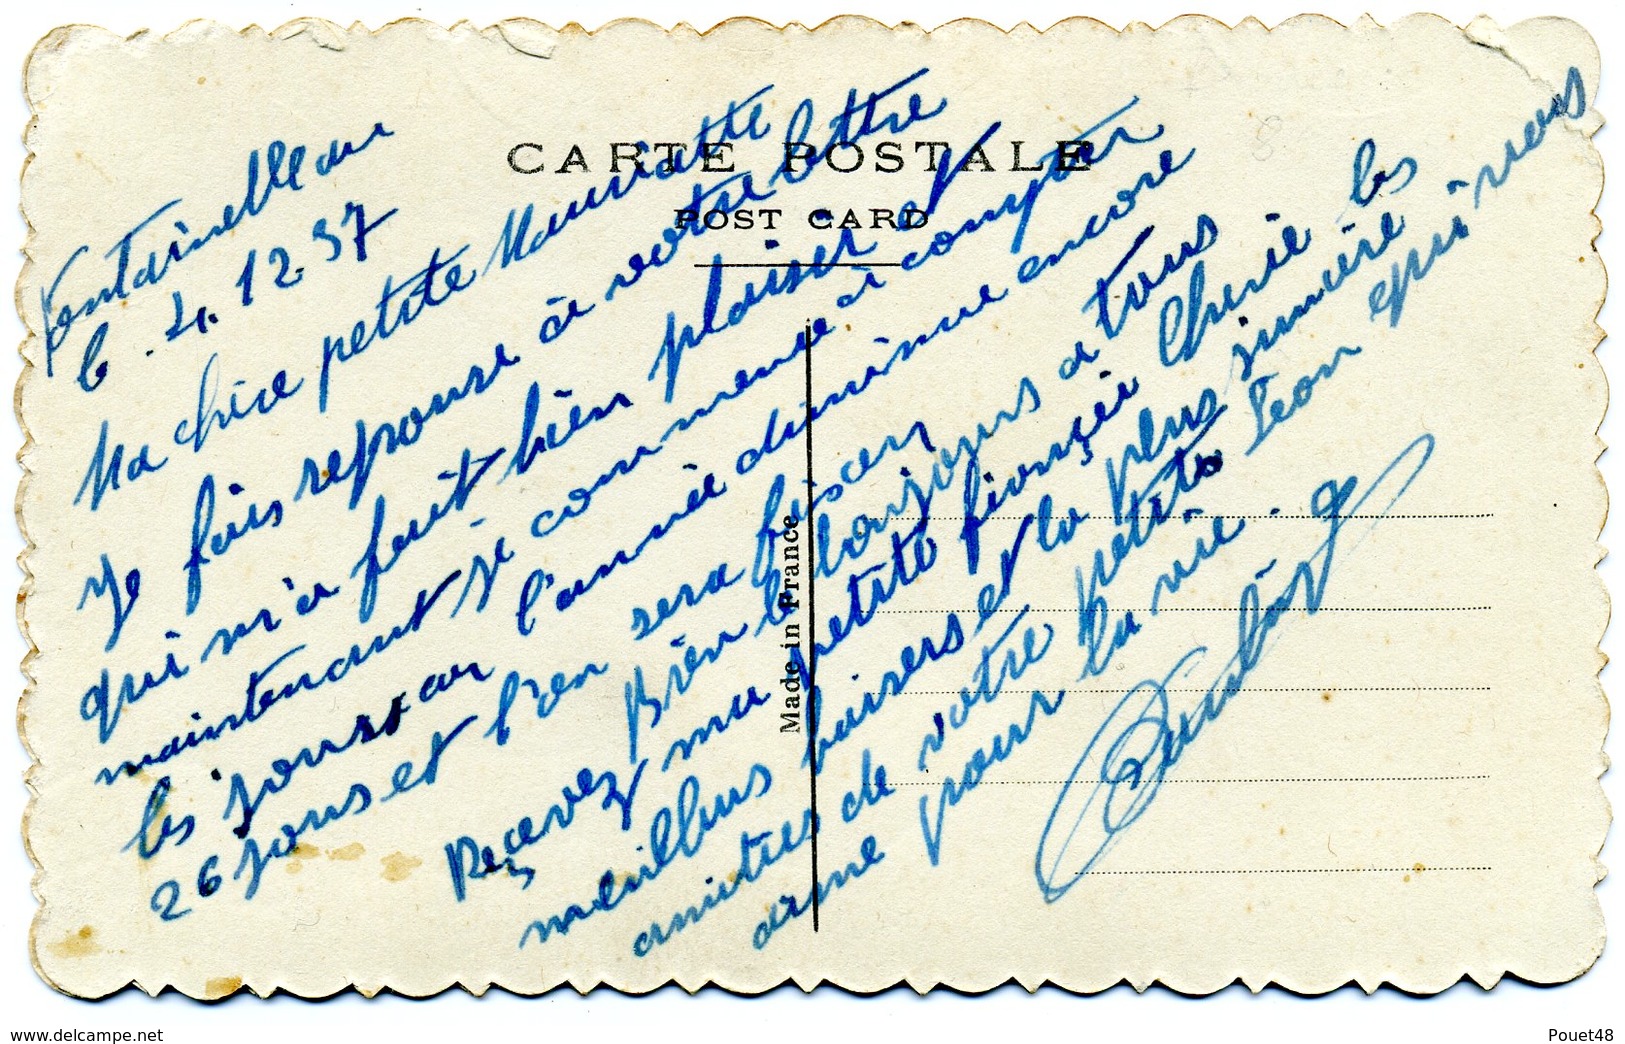 CARTE POSTALE
POST CARD
Made in France
Fontainelleau
le . 4. 12. 37
Ma chère petite Mauriatte
Je fais reponse à votre lettre
qui m'a fait bien plaisir et
maintenant je commence à compter
les jours car l'année diminue encore
26 jours et l'on sera faisan
Bien le bonjours a tous
Reçevez ma petite fiançée Cherie les
meillurs baisers et la plus sinmère
amities de votre petit Jean qui vous
aime pour la vie.
Pouet48
www.delcampe.net